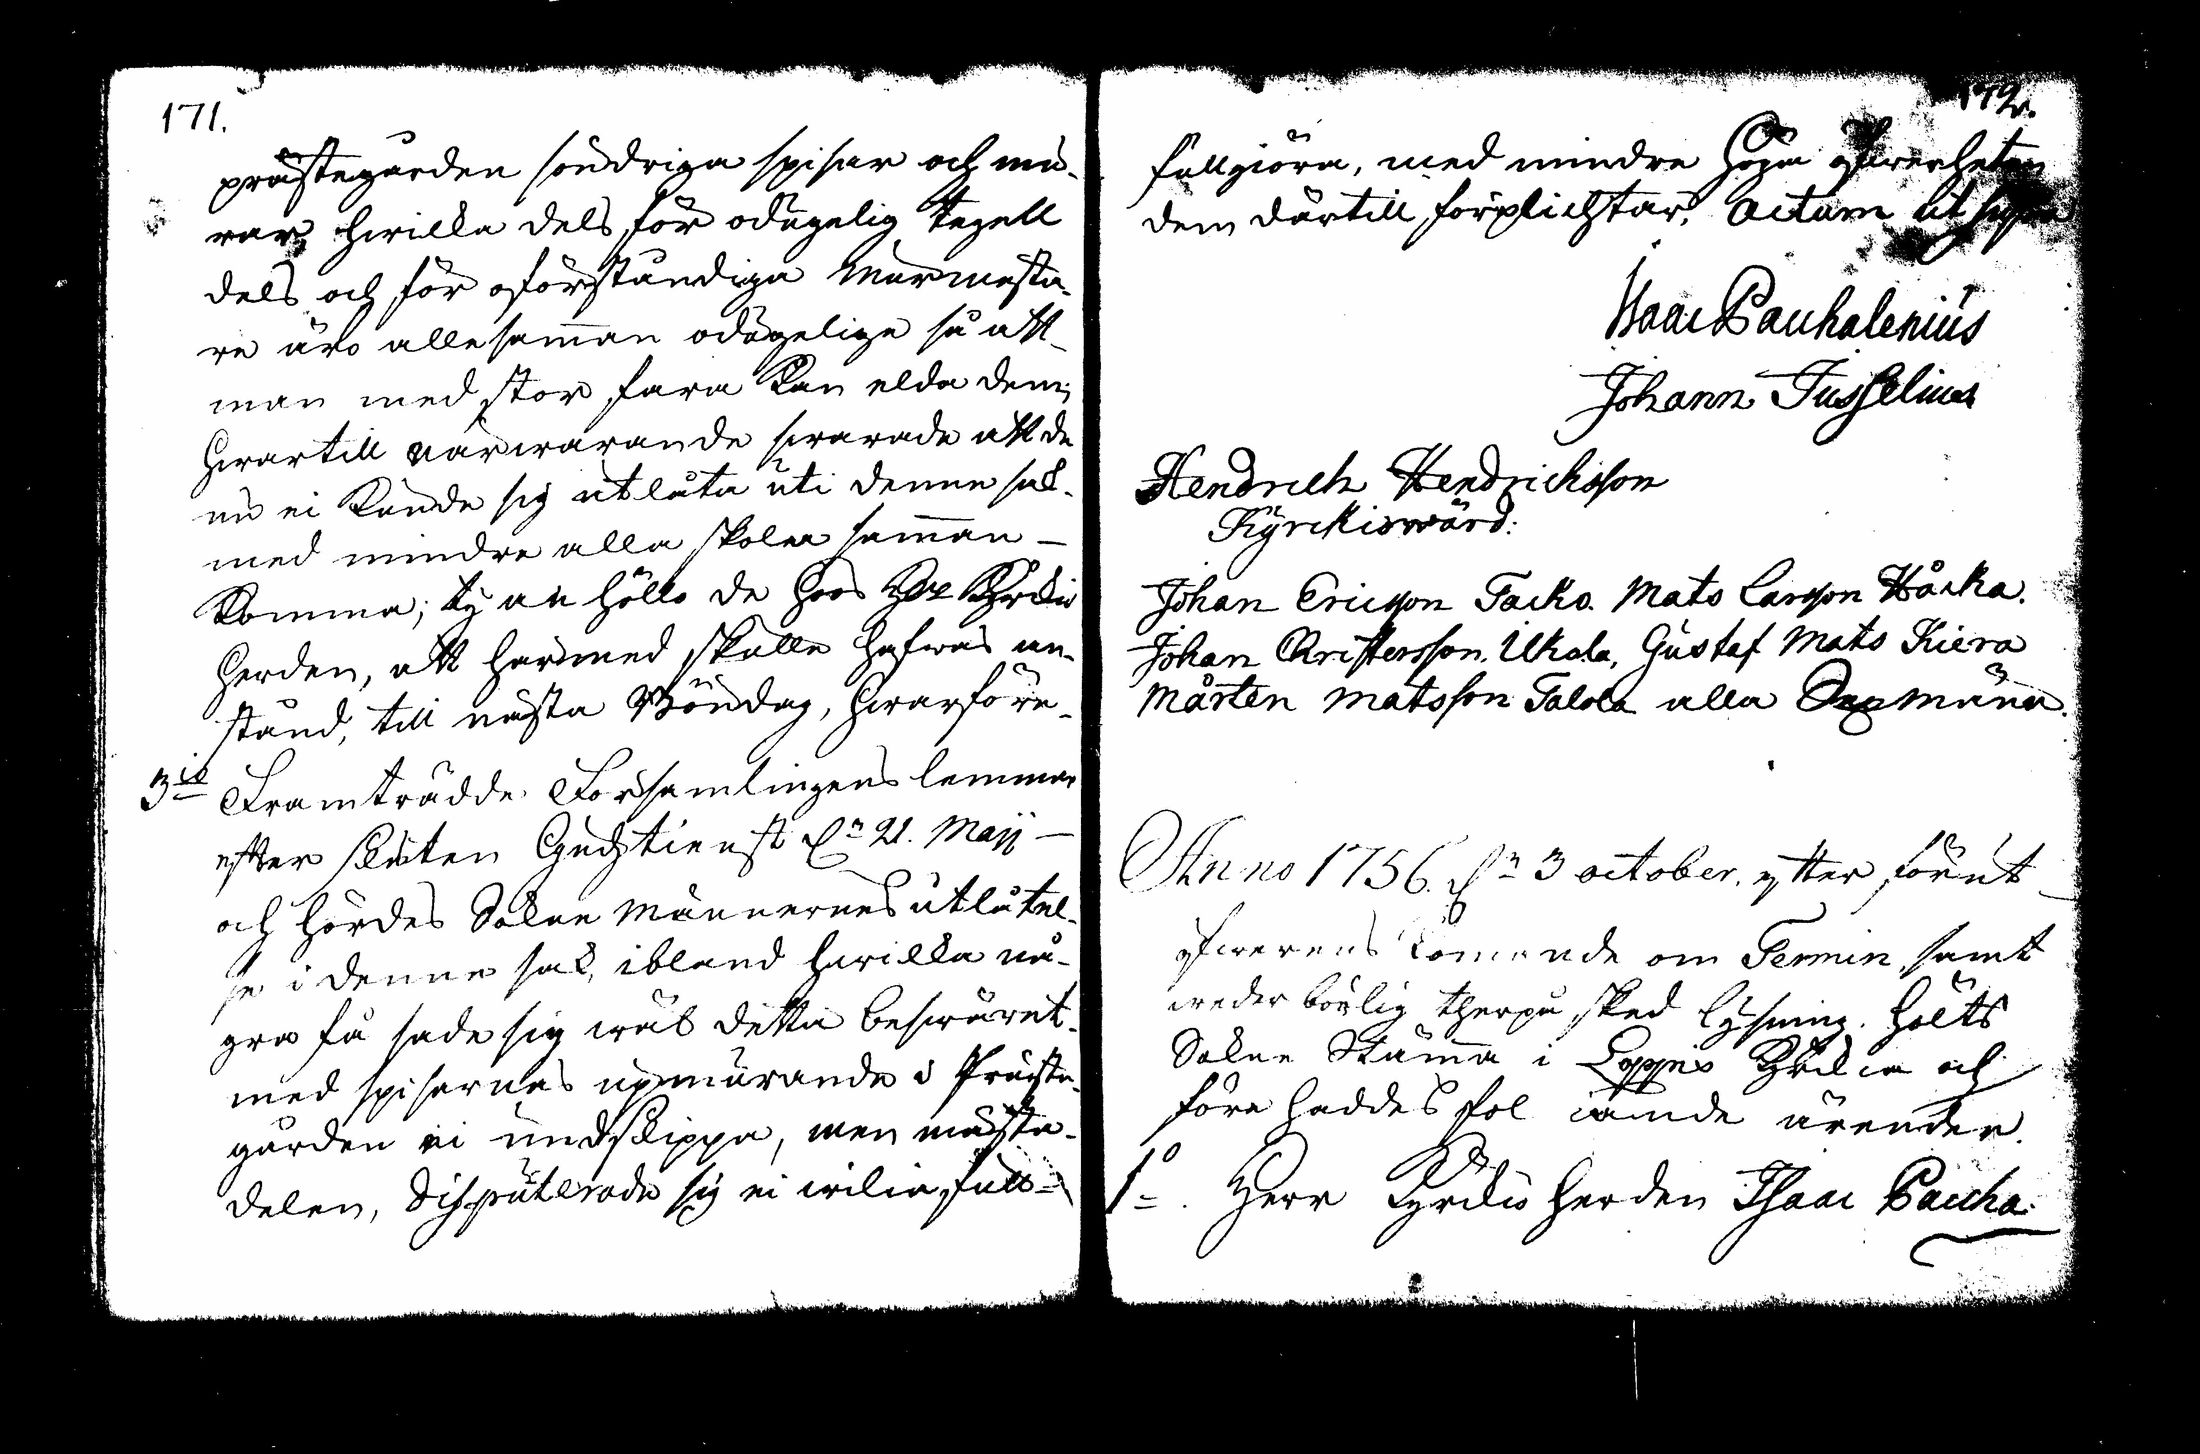 171.
prästegården söndriga spisar och mu-
rar, hwilka dels för odugelig tegell
dels och för oförståndiga Murmesta-
re äro allesamman odugelige så att
man med stor fara kan elda dem;
hwartill närwarande swarade att de
nu ei kunde sig utlåta uti denne sak-
med mindre alla skolen samman-
komma; ty an höllo de hoos Hr Kyrckio
herden, att härmed skulle hafwas an-
stånd, till nästa Böndag, hwarföre-
3io Framträdde Församlingens lemmar
efter sluten Gudztienst dn 21. Maji -
och hördes Sokne Männernes utlåtel-
se i denne sak, ibland hwilka nå-
gra få sade sig wäl detta beswäret-
med spisarnas upmurande i Präste-
gården ei undslippa, men mästa-
delen, disputerade sig ei wilia full-
172.
fullgiöra, med mindre höga öfwerheten
dem därtill förplichtar. Actum ut supra
Isaac Pauhalenius
Johann Fusselius
Hendrich Hendrichsson
Kyrckiowärd:
Johan Ericsson Tacko. Mats Larsson Håcka.
Johan Christersson. Ukola, Gustaf Mats Kiera
Mårten Matsson Talola alla Sexmänn.
Anno 1756. dn 3 october, efter förut
öfwerens komande om Termin, samt
wederbörlig therpå sked lysning. hölts
Sokne Stämma i Loppis Kyrckia och
före haddes föl iande ärender.
1o. Herr Kyrckio herden Isaac Pauha-